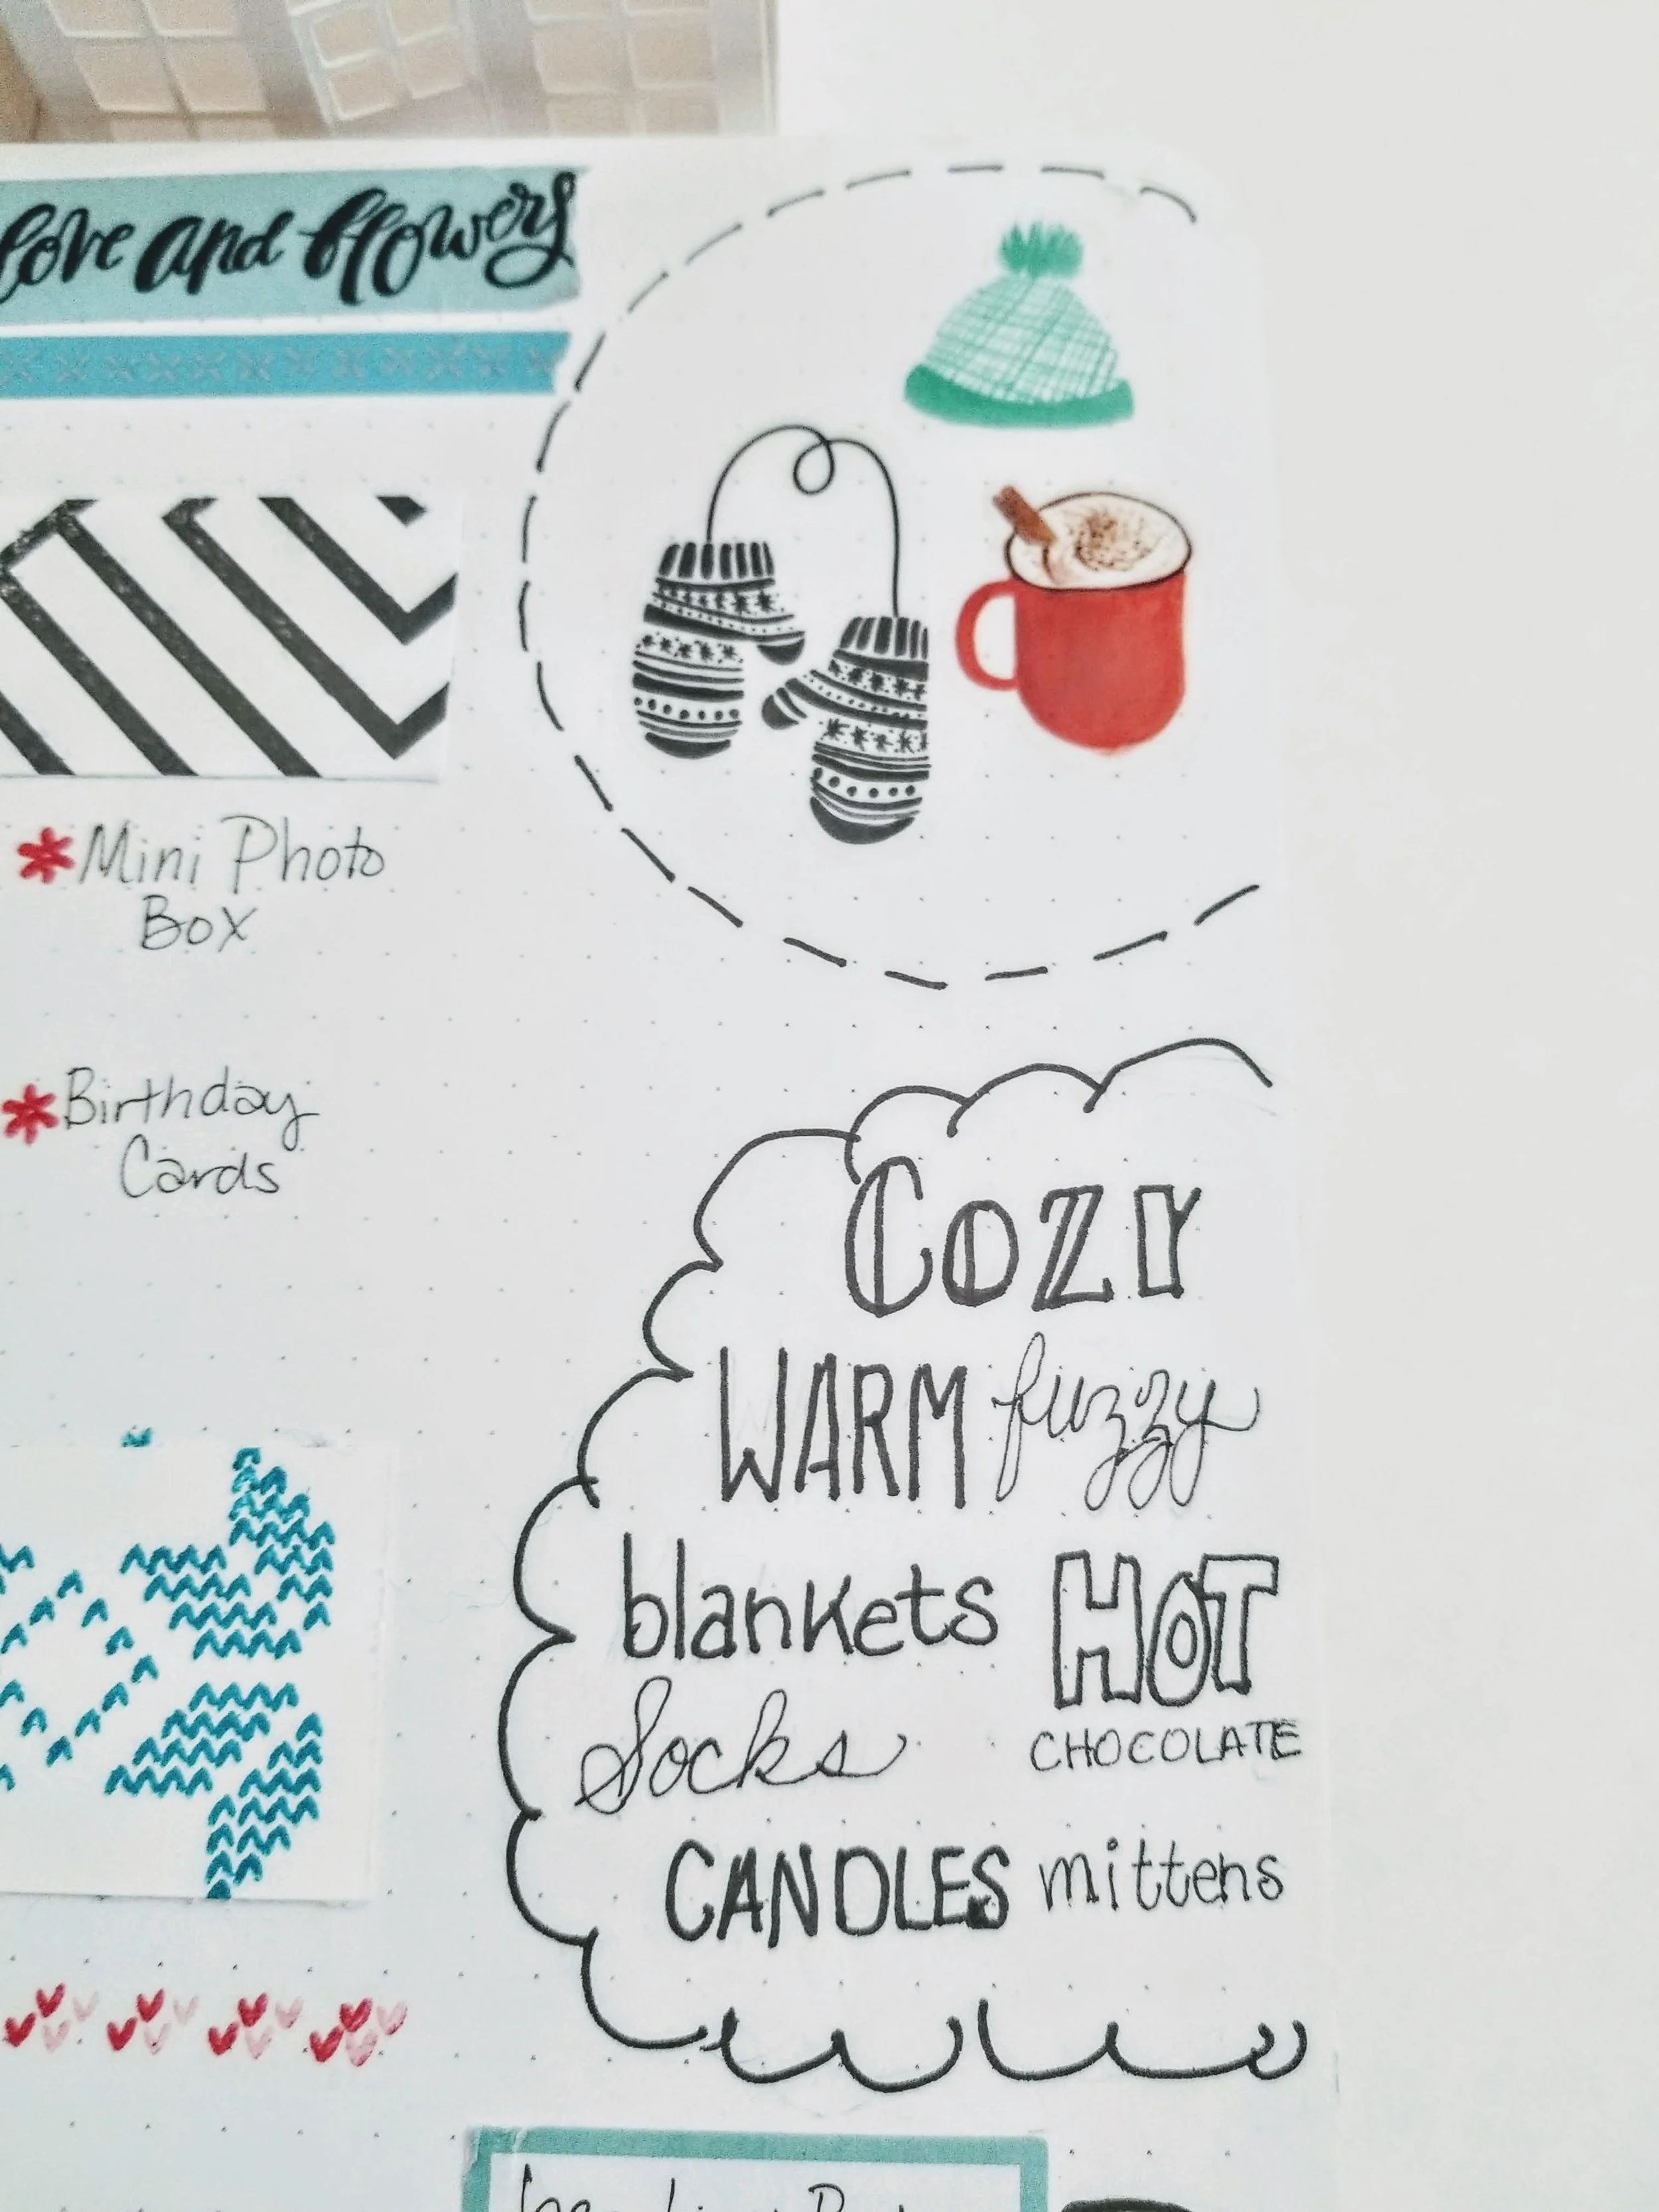 love and flowers
*Mini Photo
Box
*Birthday
Cards
Cozy
WARM fuzzy
blankets HOT
Socks CHOCOLATE
CANDLES mittens